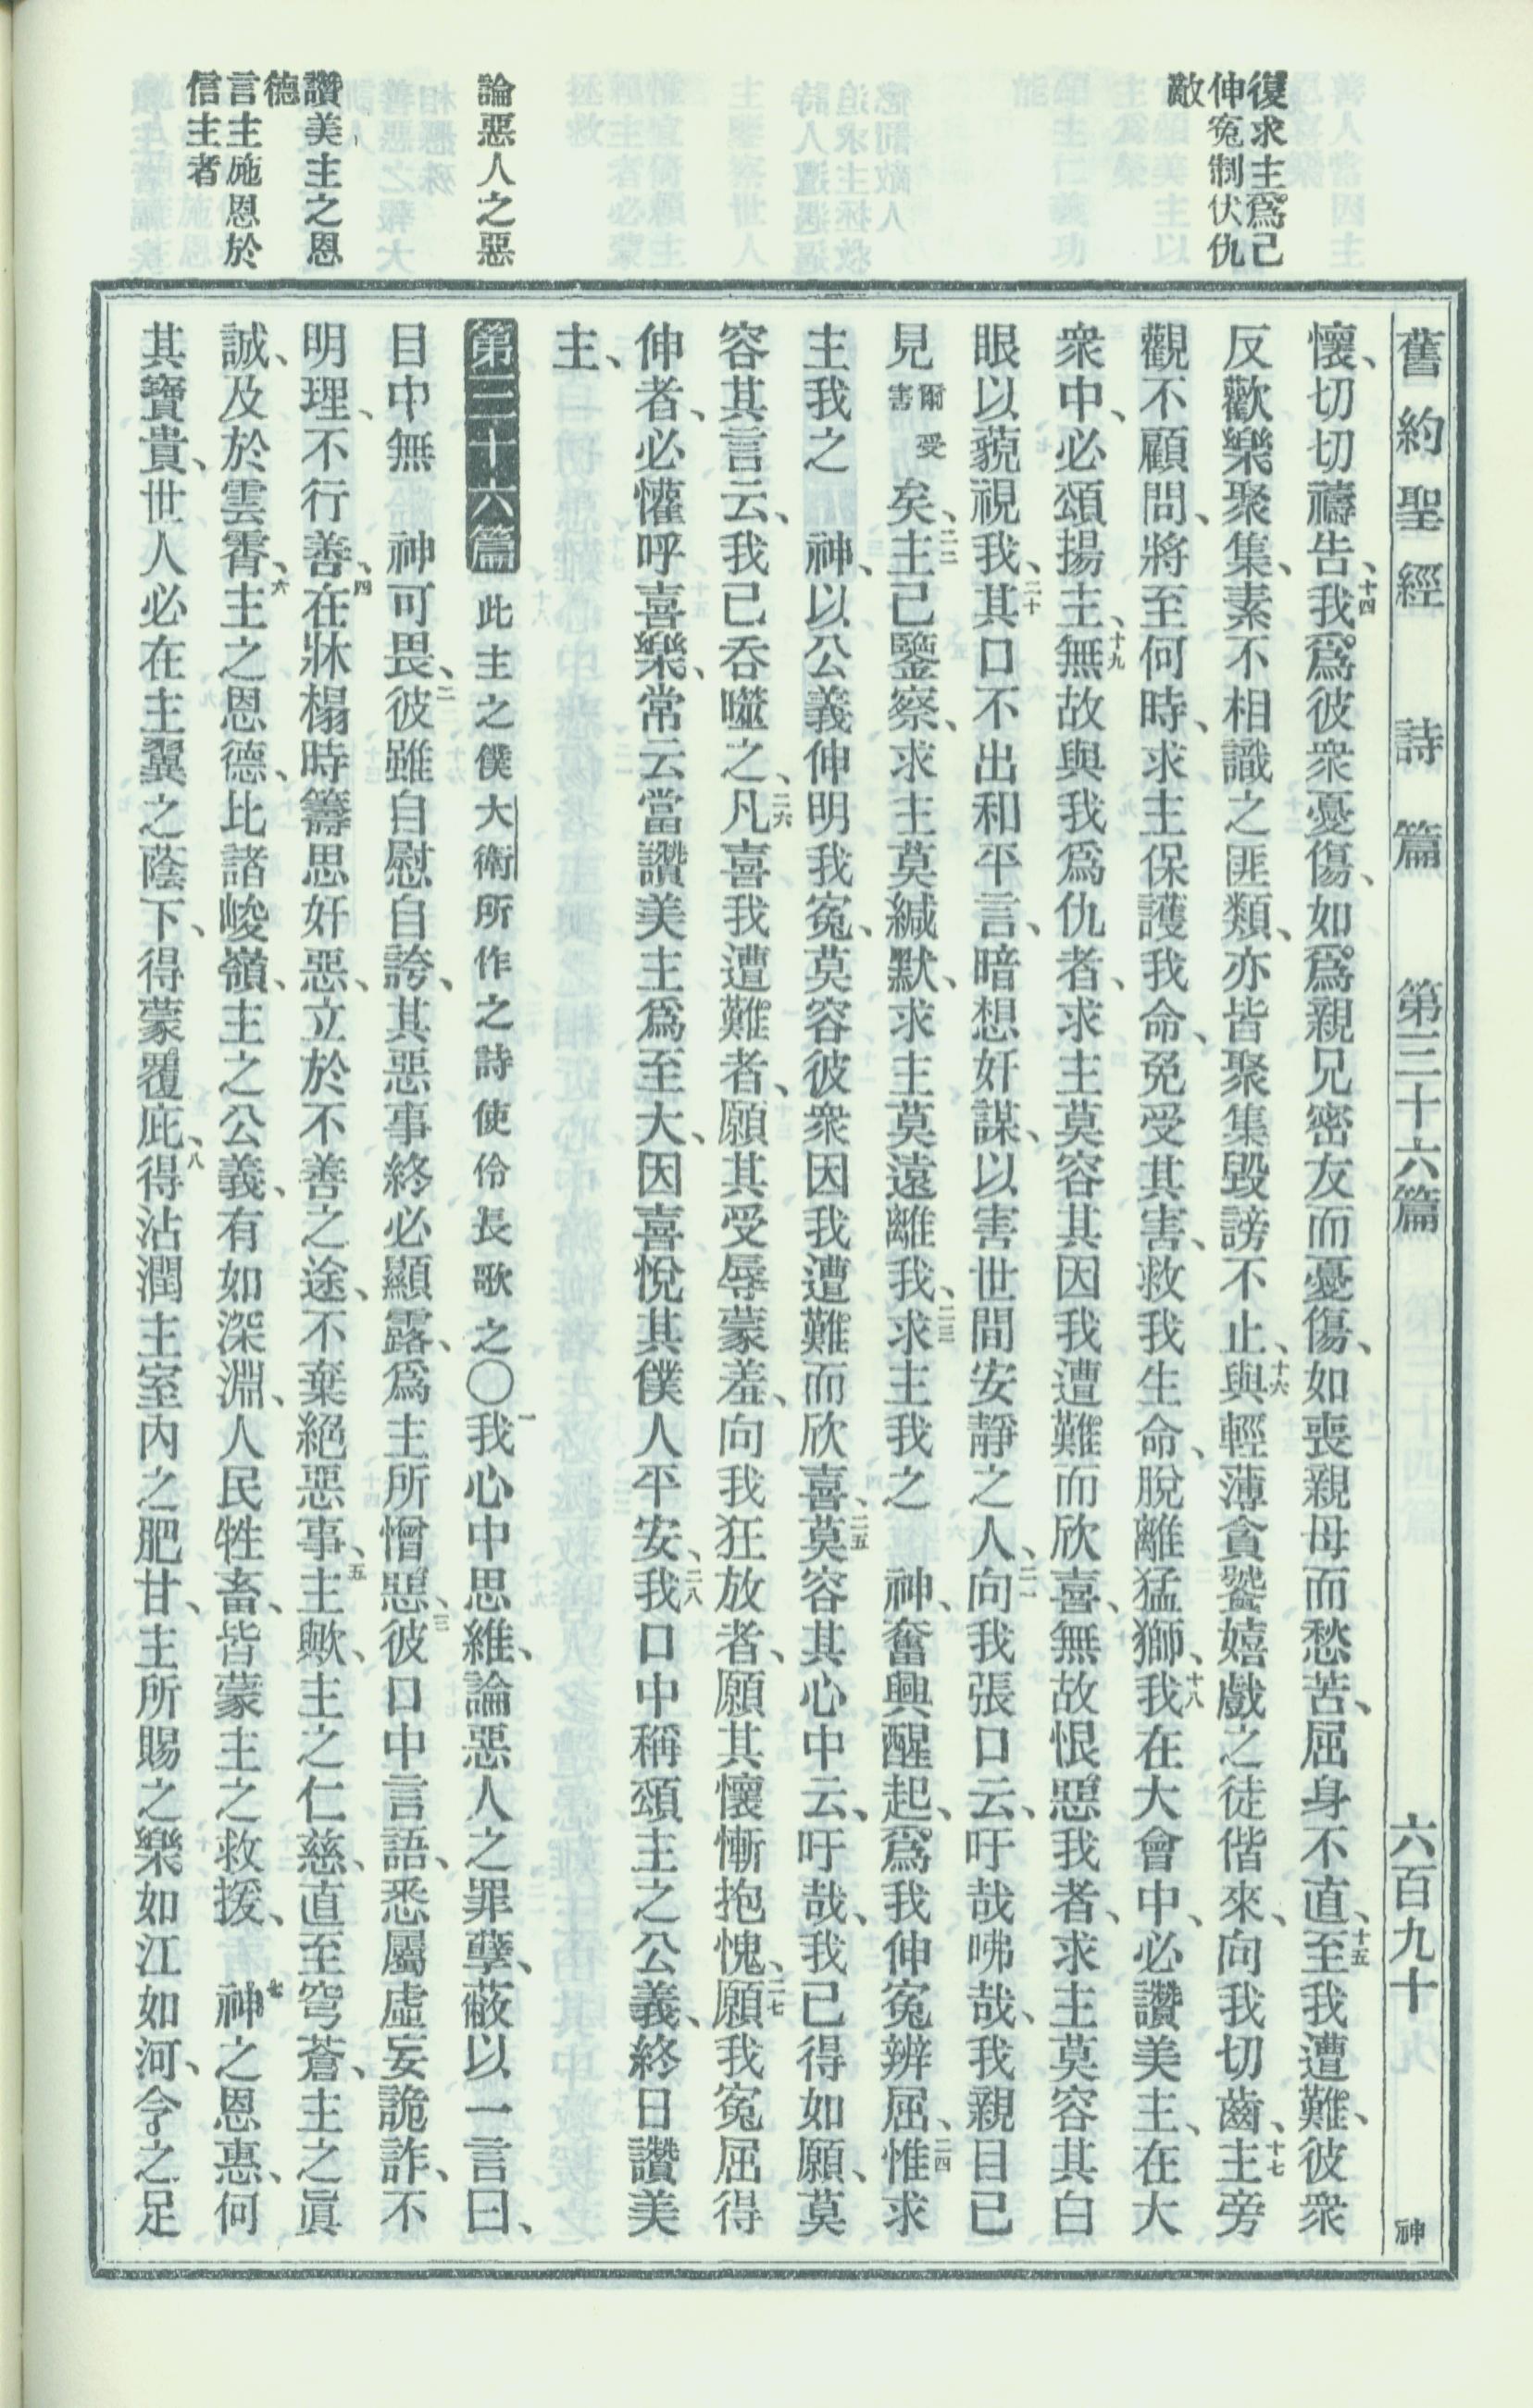 舊約聖經　詩篇　第三十六篇　六百九十　神
復求主爲己
伸寃制伏仇
敵
論惡人之惡
讚美主之恩
德
言主施恩於
信主者
懷、切切禱告、十四我爲彼衆憂傷、如爲親兄密友而憂傷、如喪親母而愁苦、屈身不直、十五至我遭難、彼衆
反歡樂聚集、素不相識之匪類、亦皆聚集毀謗不止、十六與輕薄貪饕嬉戲之徒偕來、向我切齒、十七主旁
觀不顧問、將至何時、求主保護我命、免受其害、救我生命、脫離猛獅、十八我在大會中、必讚美主、在大
衆中、必頌揚主、十九無故與我爲仇者、求主莫容其因我遭難而欣喜、無故恨惡我者、求主莫容其白
眼以藐視我、二十其口不出和平言、暗想奸謀、以害世間安靜之人、二一向我張口云、吁哉咈哉、我親目已
見爾受害矣、二二主已鑒察、求主莫緘默、求主莫遠離我、二三求主我之　神、奮興醒起、爲我伸寃辨屈、二四惟求
主我之　神、以公義伸明我寃、莫容彼衆因我遭難而欣喜、二五莫容其心中云、吁哉、我已得如願、莫
容其言云、我已吞噬之、二六凡喜我遭難者、願其受辱蒙羞、向我狂放者、願其懷慚抱愧、二七願我寃屈得
伸者、必懽呼喜樂、常云當讚美主爲至大、因喜悅其僕人平安、二八我口中稱頌主之公義、終日讚美
主、
第三十六篇　此主之僕大衛所作之詩使伶長歌之〇一我心中思維、論惡人之罪孽、蔽以一言曰、
目中無　神可畏、二彼雖自慰自誇、其惡事終必顯露、爲主所憎惡、三彼口中言語、悉屬虛妄詭詐、不
明理、不行善、四在牀榻時籌思奸惡、立於不善之途、不棄絕惡事、五主歟、主之仁慈、直至穹蒼、主之眞
誠、及於雲霄、六主之恩德、比諸峻嶺、主之公義、有如深淵、人民牲畜、皆蒙主之救援、七　神之恩惠、何
其寶貴、世人必在主翼之蔭下、得蒙覆庇、八得沾潤主室內之肥甘、主所賜之樂如江如河、令之足